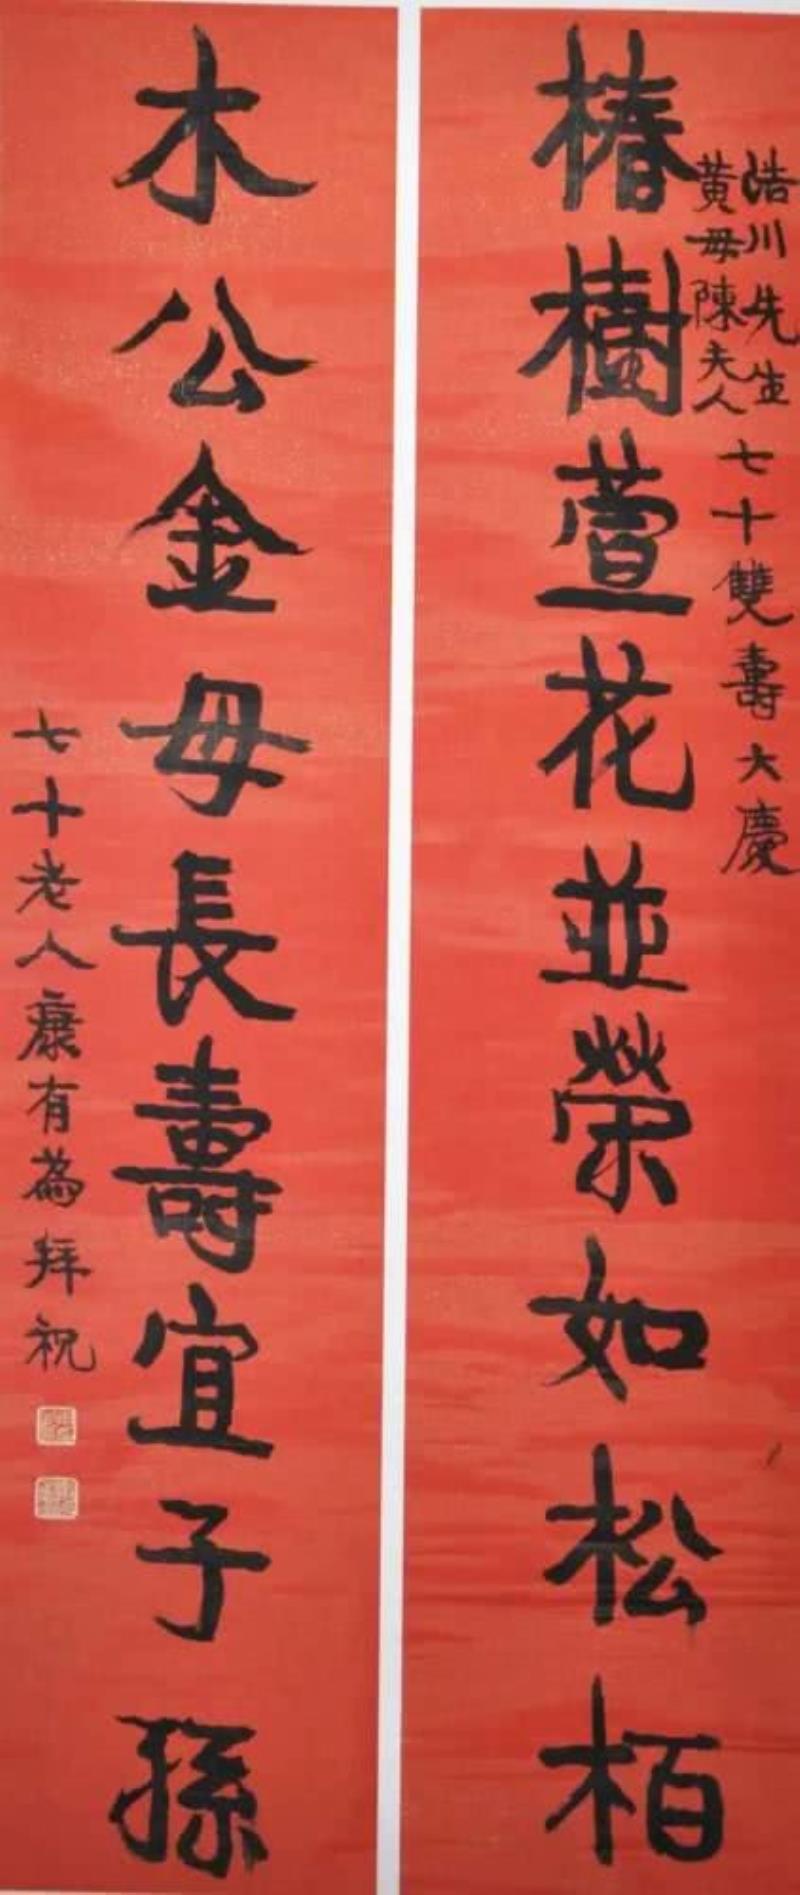 浩川先生
黃母陳夫人
七十雙壽大慶
椿樹萱花並榮如松柏
木公金母長壽宜子孫
七十老人康有為拜祝